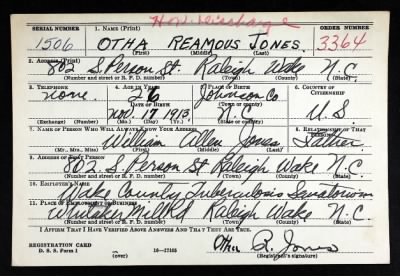 Hon. Discharge
SERIAL NUMBER 1. NAME (Print) ORDER NUMBER
1506 OTHA REAMOUS JONES. 3364
(First) (Middle) (Last)
2. ADDRESS (Print)
802 S. Person St. Raleigh Wake N.C.
(Number and street or R. F. D. number) (Town) (County) (State)
3. TELEPHONE 4. AGE IN YEARS 5. PLACE OF BIRTH 6. COUNTRY OF CITIZENSHIP
none. 26 Johnson Co
DATE OF BIRTH (Town or county)
Nov. 17 1913 N.C. U.S.
(Exchange) (Number) (Mo.) (Day) (Yr.) (State or country)
7. NAME OF PERSON WHO WILL ALWAYS KNOW YOUR ADDRESS 8. RELATIONSHIP OF THAT PERSON
William Allen Jones Father
(Mr., Mrs., Miss) (First) (Middle) (Last)
9. ADDRESS OF THAT PERSON
802. S. Person St Raleigh Wake N.C.
(Number and street or R. F. D. number) (Town) (County) (State)
10. EMPLOYER'S NAME
Wake County Tuberculosis Sanatorium
11. PLACE OF EMPLOYMENT OR BUSINESS
Whitaker Mill Rd Raleigh Wake N.C.
(Number and street or R. F. D. number) (Town) (County) (State)
I AFFIRM THAT I HAVE VERIFIED ABOVE ANSWERS AND THAT THEY ARE TRUE.
Otha R. Jones
REGISTRATION CARD
D. S. S. Form 1 (over) 16—17105 (Registrant's signature)